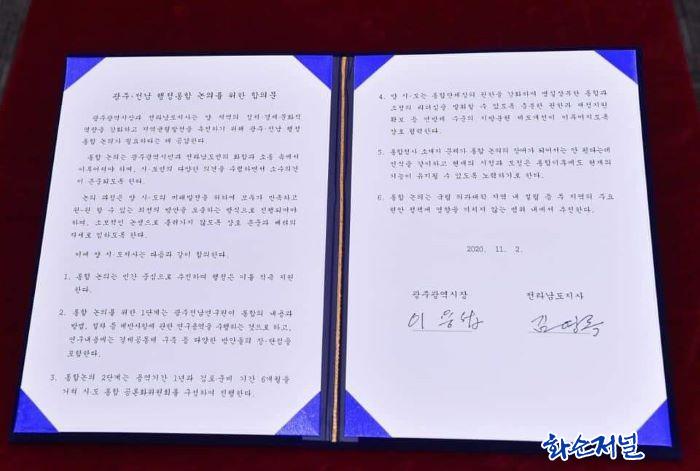 광주·전남 행정통합 논의를 위한 합의문
광주광역시장과 전라남도지사는 양 지역의 정치·경제·문화적
역량을 강화하고 지역균형발전을 추진하기 위해 광주·전남 행정
통합 논의가 필요하다는 데 공감한다.
통합 논의는 광주광역시민과 전라남도민의 화합과 소통 속에서
이루어져야 하며, 시·도민의 다양한 의견을 수렴하면서 소수의견
이 존중되도록 한다.
논의 과정은 양 시·도의 미래발전을 위하여 모두가 만족하고
윈-윈 할 수 있는 최선의 방안을 도출하는 방식으로 진행되어야
하며, 소모적인 논쟁으로 흘러가지 않도록 상호 존중과 배려의
자세로 임하도록 한다.
이에 양 시·도지사는 다음과 같이 합의한다.
1. 통합 논의는 민간 중심으로 추진하며 행정은 이를 적극 지원
한다.
2. 통합 논의를 위한 1단계는 광주전남연구원이 통합의 내용과
방법, 절차 등 제반사항에 관한 연구용역을 수행하는 것으로 하고,
연구내용에는 경제공동체 구축 등 다양한 방안들의 장·단점을
포함한다.
3. 통합논의 2단계는 용역기간 1년과 검토·준비 기간 6개월을
거쳐 시·도 통합 공론화위원회를 구성하여 진행한다.
4. 양 시·도는 통합단체장의 권한을 강화하여 명실상부한 통합과
조정의 리더십을 발휘할 수 있도록 충분한 권한과 재정지원
확보 등 연방제 수준의 지방분권 제도개선이 이루어지도록
상호 협력한다.
5. 통합청사 소재지 문제가 통합 논의의 장애가 되어서는 안 된다는데
인식을 같이하고 현재의 시청과 도청은 통합이후에도 현재의
기능이 유지될 수 있도록 노력하기로 한다.
6. 통합 논의는 국립 의과대학 지역 내 설립 등 주 지역의 주요
현안 정책에 영향을 미치지 않는 범위 내에서 추진한다.
2020. 11. 2.
광주광역시장 전라남도지사
이용섭 김영록
화순저널